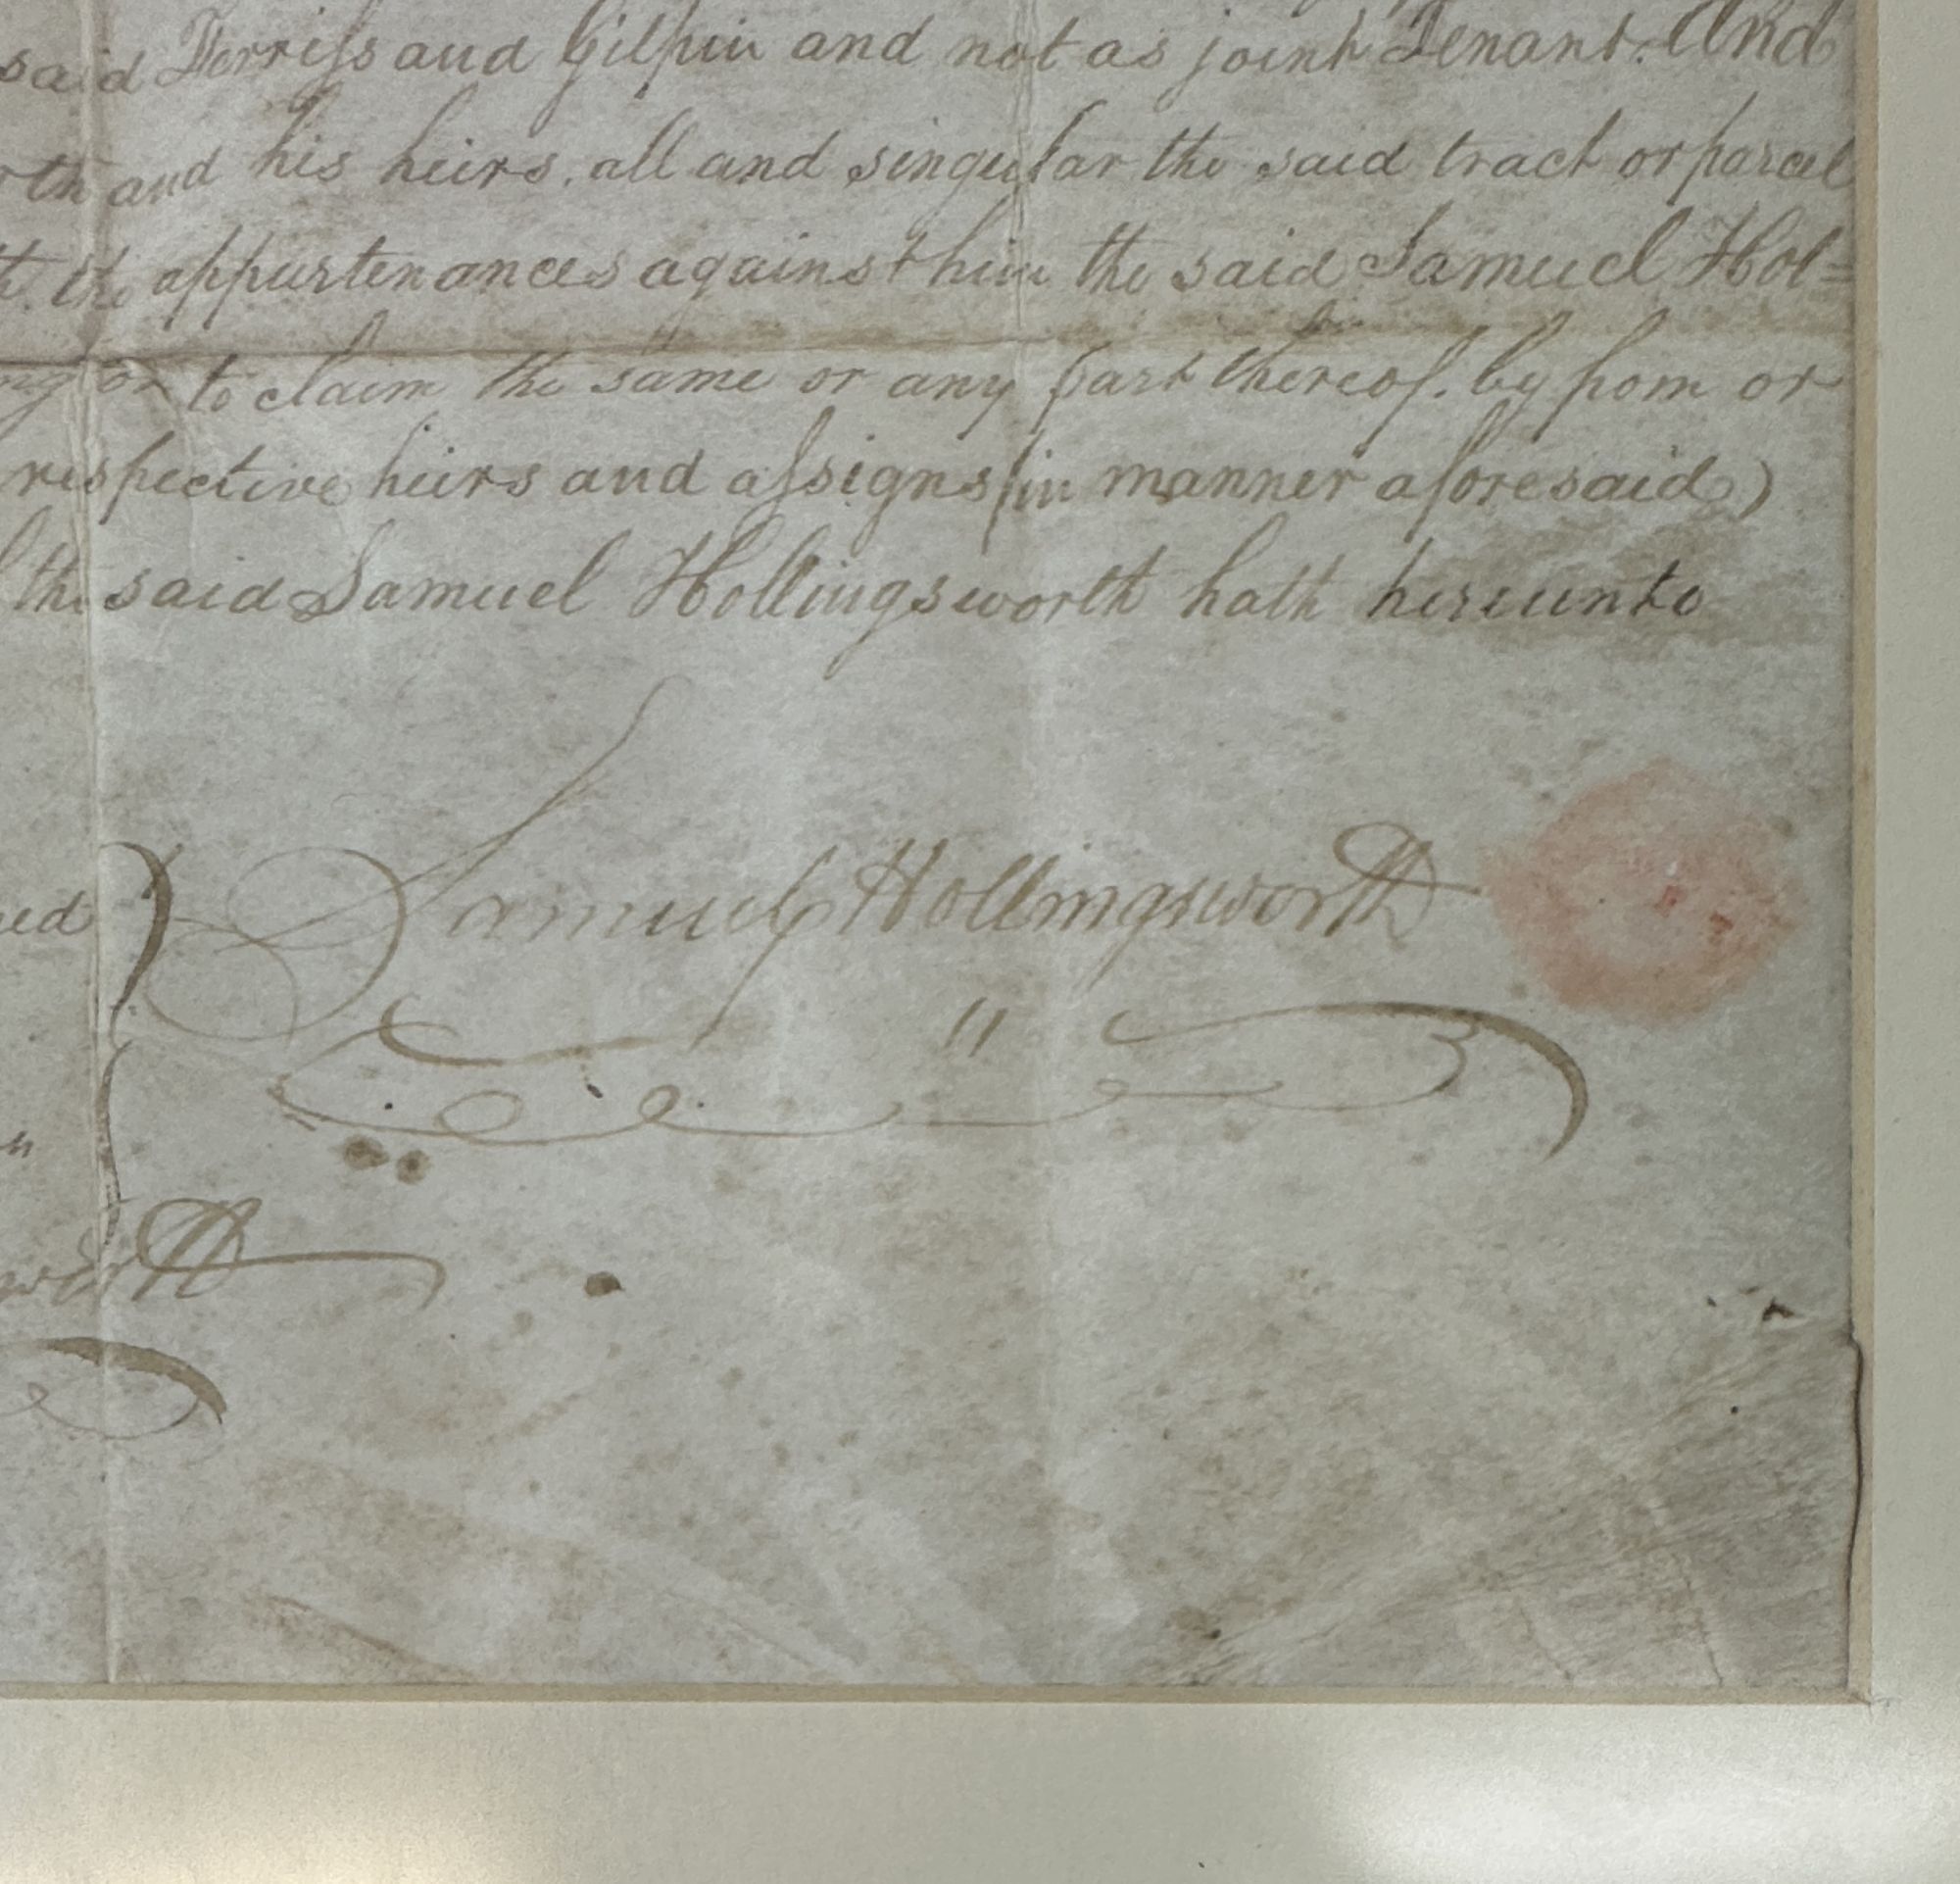 said Ferriss and Gilpin and not as joint Tenants. And
rth and his heirs, all and singular the said tract or parcel
the appurtenances against him the said Samuel Hol=
ng or to claim the same or any part thereof. by from or
respective heirs and assigns (in manner aforesaid)
the said Samuel Hollingsworth hath hereunto
Samuel Hollingsworth